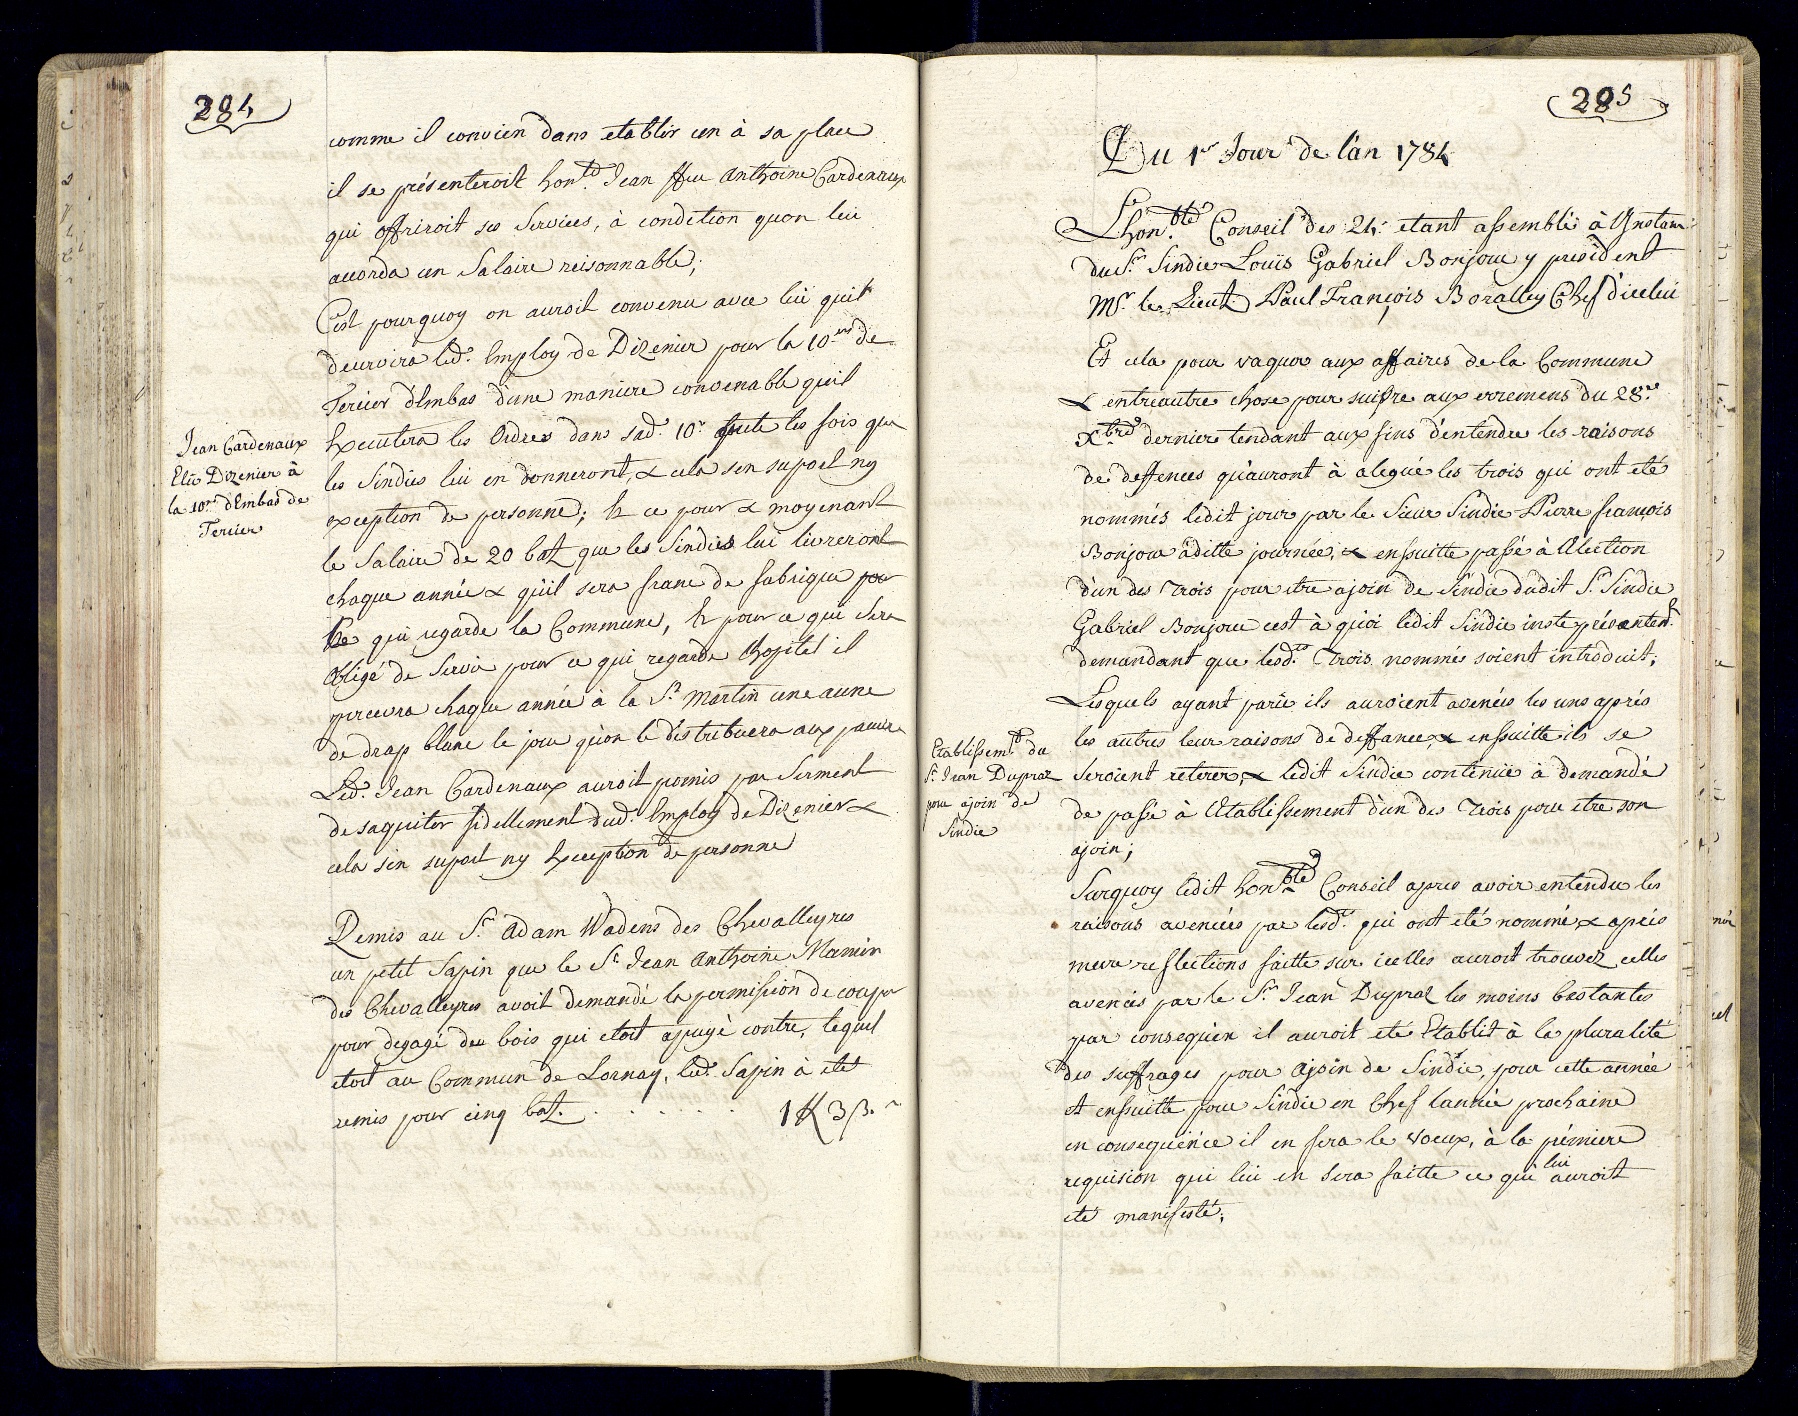 284
comme il convien dans etablir un à sa place
il se présenteroit hon.té Jean ffeu Anthoine Cardenaux
qui offriroit ses Services, à condition quon lui
acorda un Salaire reisonnable;
C'est pourquoy on auroit convenu avec lüi quil
deurvira led. Employ de Dizenier pour la 10.ne de
Tercier d'Embas d'une maniere convenable quil
Executera les Ordres dans lad. 10.e toute les fois que
les Sindics lui en donneront, & cela sen suport ny
exception de personne; Et ce pour & moyenant
le Salaire de 20 batz que les Sindics lui livreront
chaque année & qu'il sera franc de fabrique pour
ce qui regarde la Commune, Et pour ce qui Sera
Obligé de Servir pour ce qui regarde l'hopital il
percevra chaque année à la S.t Martin une aune
de drap blanc le jour qu'on le distribuera aux pauvre
Led. Jean Cardenaux auroit promis par Serment
de saquiter fidellement dud. Employ de Dizenier &
cela sen suport ny Exception de personne
Jean Cardenaux
Elû Dizenier à
la 10.ne d'Embas de
Tercier
Remis au S.r Adam Wadens des Chevalleyres
un petit Sapin que le S.r Jean Anthoine Mamin
des Chevalleyres avoit demandé la permission de couper
pour degagé du bois qui etoit apuyè contre, lequel
etoit au Commun de Lornay, led. Sapin à eté
remis pour cinq batz . . . . . . 1 ff 3 ß. ~
285
Du 1.er Jour de l'an 1784
L'hon.ble Conseil des 24. etant assemblé à l'Instan:
du S.r Sindic Louïs Gabriel Bonjour y president
M.r le Lieut. Paul François Boralley Chef d'icelui
Et cela pour vaquer aux affaires de la Commune
& entre autre chose pour suivre aux erremens du 28.e
X.bre dernier tendant aux fins d'entendre les raisons
de deffences qu'auront à alegué les trois qui ont eté
nommés ledit jour par le Sieur Sindic Pierre françois
Bonjour à ditte journée, & ensuitte passé à l'élection
d'un des Trois pour etre ajoin de Sindic dudit S.r Sindic
Gabriel Bonjour c'est à quoi ledit Sindic inste présentem.t
demandant que lesd.ts Trois nommés soient introduit;
Lesquels ayant parû ils auroient avencés les uns aprés
les autres leur raisons de deffance, & ensuitte ils se
Seroient retirer, & ledit Sindic continüe à demandé
de passe à l'Etablissement d'un des Trois pour etre son
ajoin;
Etablissem.t du
S.r Jean Dupraz
pour ajoin de
Sindic
Surquoy ledit hon.ble Conseil apres avoir entendu les
raisons avencées par lesd.ts qui ont eté nommé & aprés
meure reflections faitte sur icelles auroit trouvez celles
avencés par le S.r Jean Dupraz les moins bastantes
par consequèn il auroit eté Etablit à la pluralité
des suffrages pour Ajoin de Sindic, pour cette année
et ensuitte pour Sindic en Chef lannée prochaine
en consequènce il en fera le voeux, à la prémiere
requision qui lui en sera faitte ce qui lui auroit
eté manifesté;